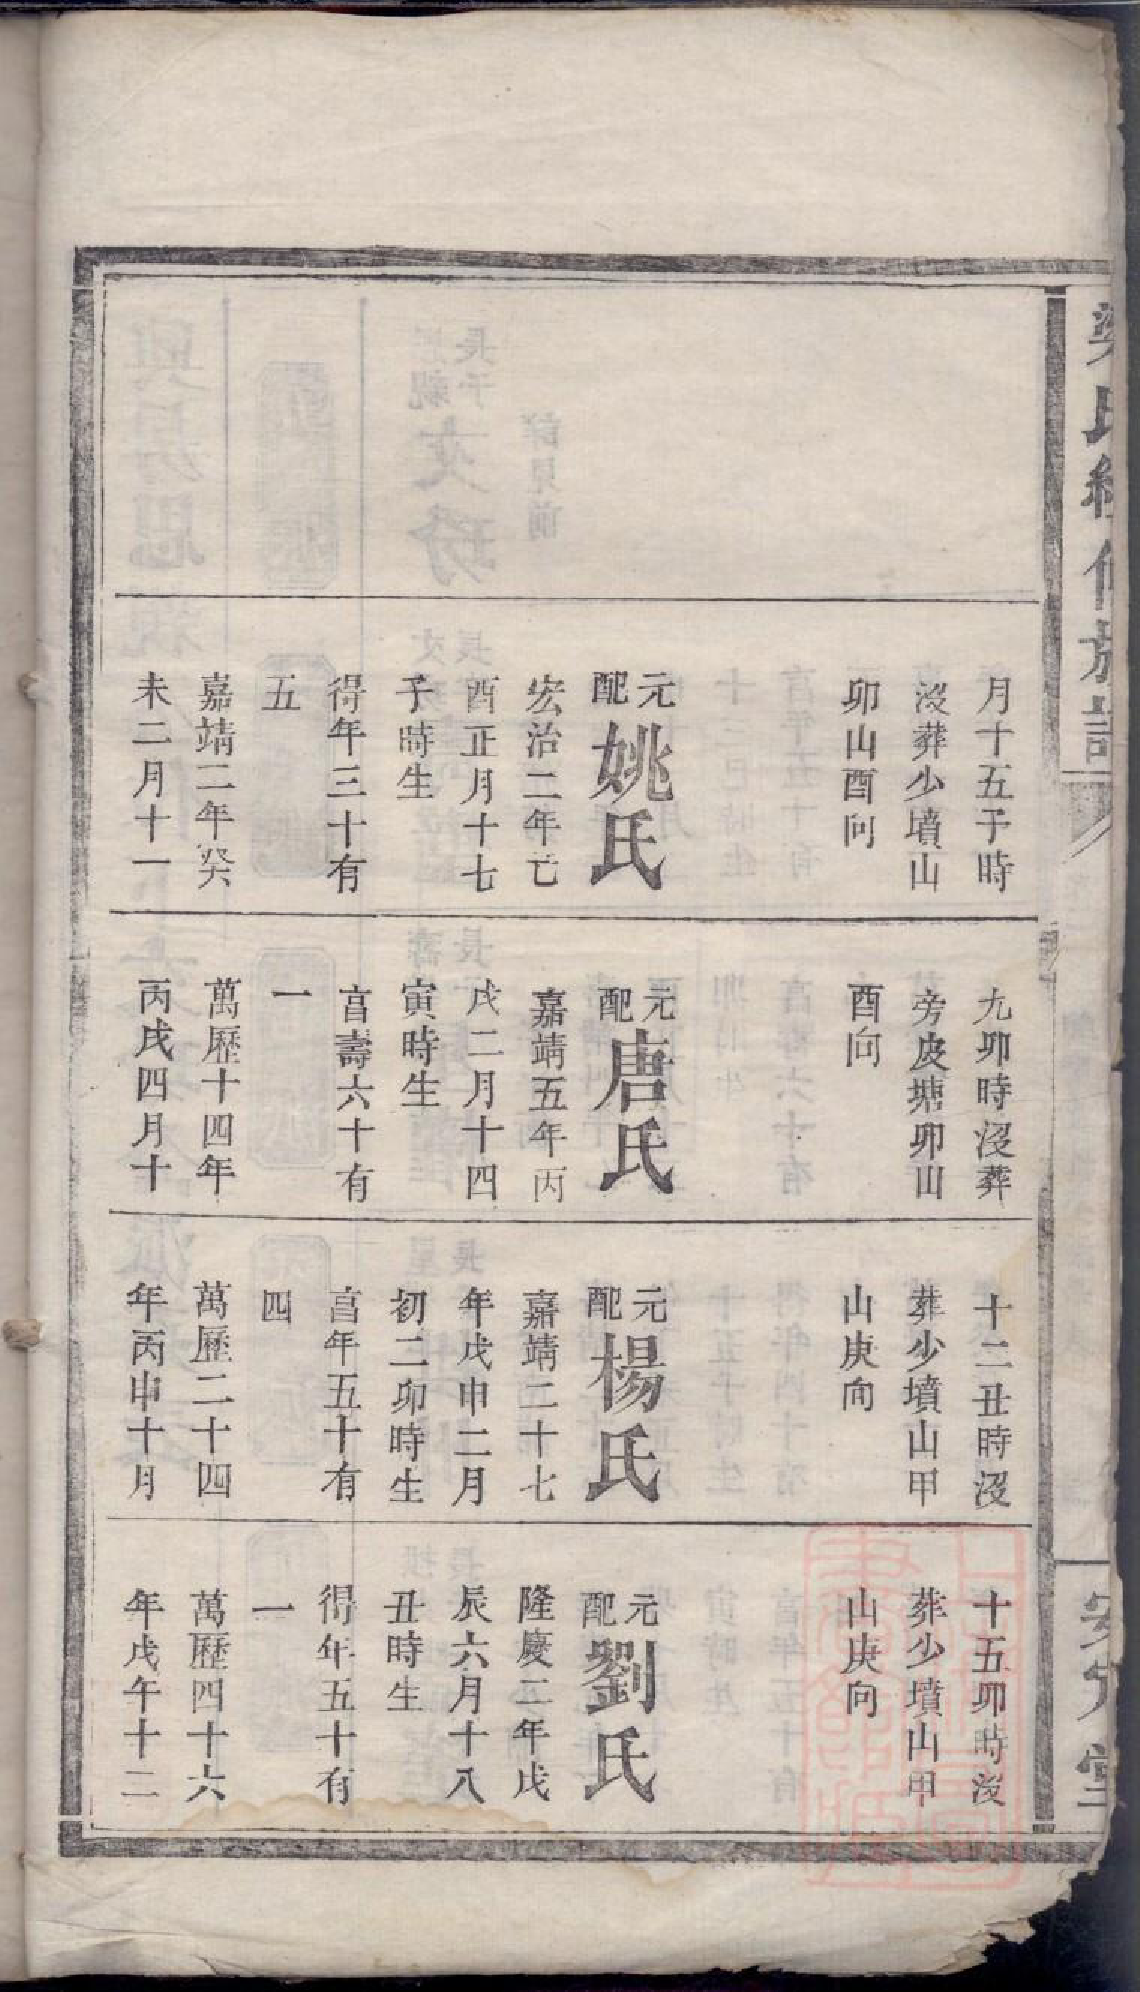 氏續修族譜
安定堂
月十五子時
沒葬少墳山
卯山酉向
元配姚氏
宏治二年己
酉正月十七
子時生
得年三十有
五
嘉靖二年癸
未二月十一
九卯時沒葬
旁皮塘卯山
酉向
元配唐氏
嘉靖五年丙
戌二月十四
寅時生
亯壽六十有
一
萬歷十四年
丙戌四月十
十二丑時沒
葬少墳山甲
山庚向
元配楊氏
嘉靖二十七
年戊申二月
初二卯時生
亯年五十有
四
萬歷二十四
年丙申十月
十五卯時沒
葬少墳山甲
山庚向
元配劉氏
隆慶二年戊
辰六月十八
丑時生
得年五十有
一
萬歷四十六
年戊午十二